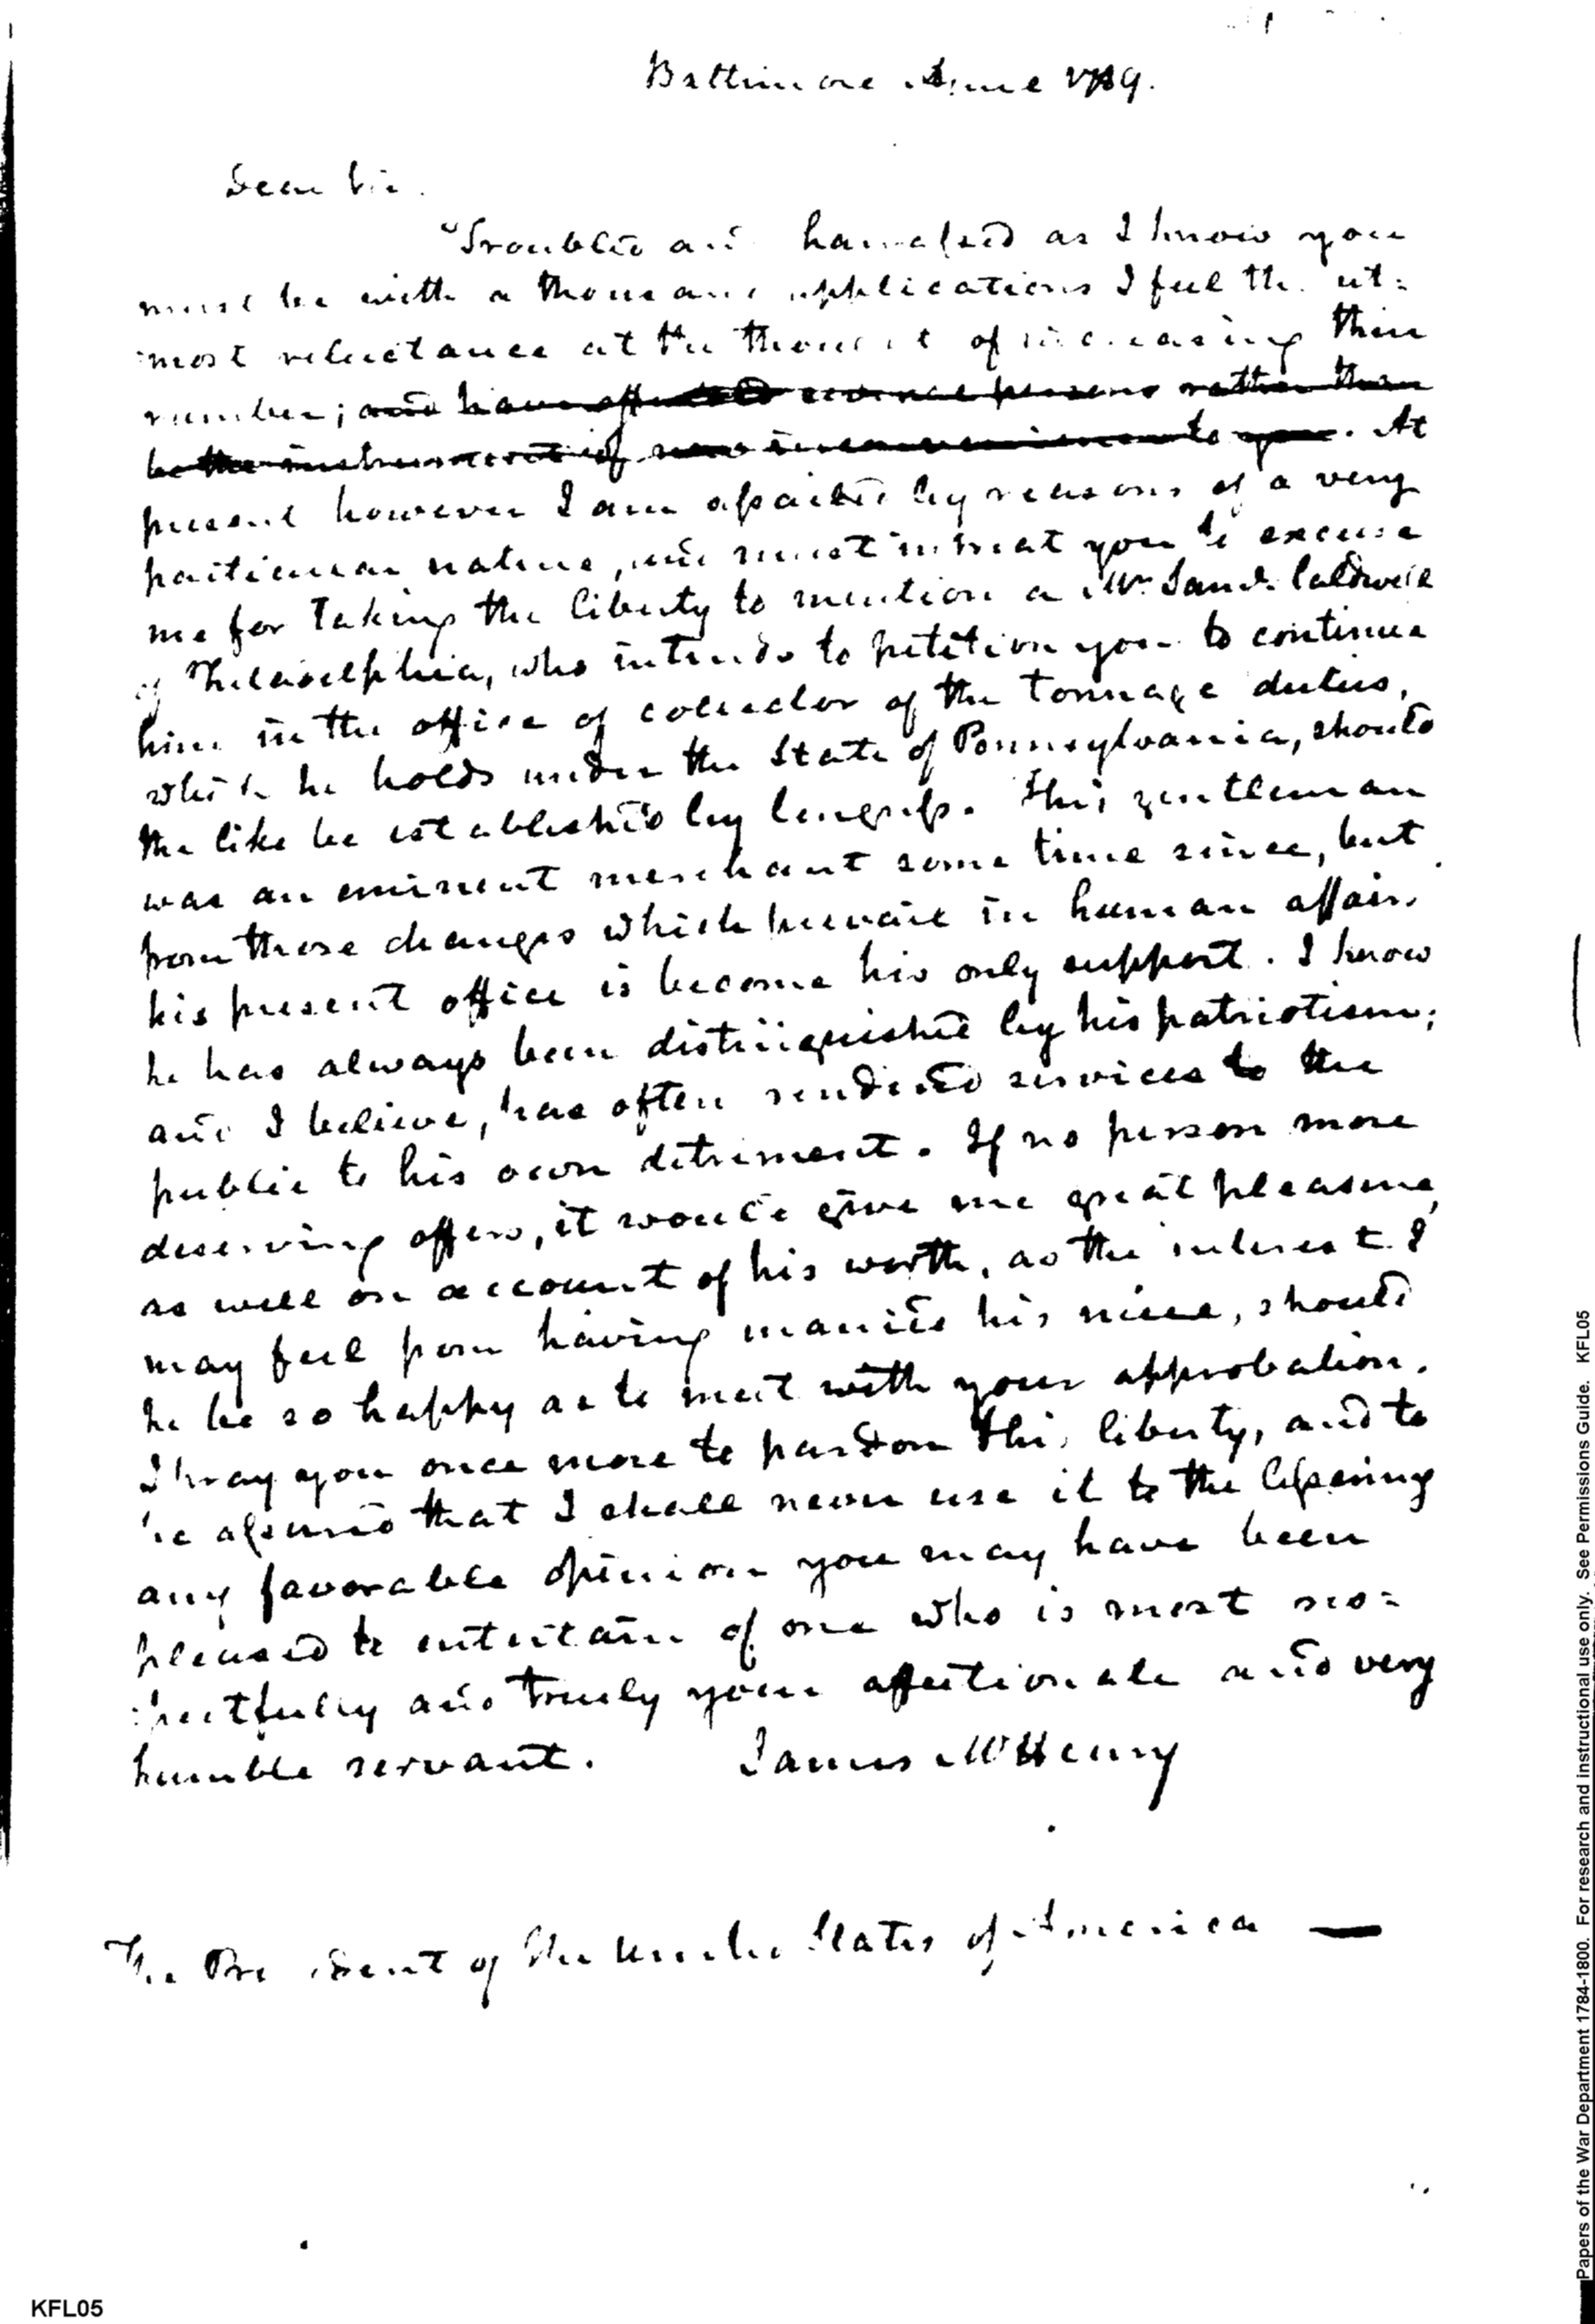 Baltimore June 1789.
Dear Sir.
Troubled and harrassed as I know you
must be with a thousand applications I feel the ut=
=most reluctance at the thought of increasing their
number; and have offended several persons rather than
be the instrument of new inconveniences to you. At
present however I am assailed by reasons of a very
particular nature, and must intreat you to excuse
me for taking the liberty to mention a Mr. Saml. Caldwell
of Philadelphia, who intends to petition you to continue
him in the office of collector of the tonnage duties,
which he holds under the State of Pennsylvania, should
the like be established by Congress. This gentleman
was an eminent merchant some time since, but
from those changes which prevail in human affairs
his present office is become his only support. I know
he has always been distinguished by his patriotism;
and I believe, has often rendered services to the
public to his own detriment. If no person more
deserving offers, it would give me great pleasure,
as well on account of his worth, as the interest I
may feel from having married his niece, should
he be so happy as to meet with your approbation.
I pray you once more to pardon this liberty, and to
be assured that I shall never use it to the lessening
any favorable opinion you may have been
pleased to entertain of one who is most res=
=pectfully and truely your affectionate and very
humble servant. James McHenry
The President of the United States of America —
KFL05
Papers of the War Department 1784-1800. For research and instructional use only. See Permissions Guide. KFL05